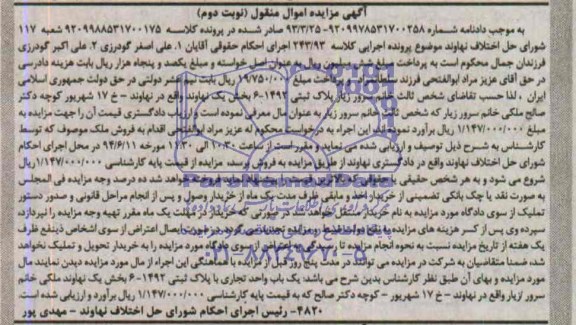 آگهی مزایده اموال منقول (نوبت دوم)
به موجب دادنامه شماره ۹۲۰۹۹۷۸۵۳۱۷۰۰۲۵۸-۹۳/۳/۲۵ صادر شده در پرونده کلاسه ۹۲۰۹۹۸۸۵۳۱۷۰۰۱۷۵ شعبه ۱۱۷
شورای حل اختلاف نهاوند موضوع پرونده اجرایی کلاسه ۲۴۳/۹۳ اجرای احکام حقوقی آقایان ۱. علی اصغر گودرزی ۲. علی اکبر گودرزی
فرزندان جمال محکوم است به پرداخت مبلغ میلیون ریال به عنوان اصل خواسته و مبلغ یکصد و پنجاه هزار ریال بابت هزینه دادرسی
در حق آقای عزیز مراد ابوالفتحی فرزند سلطانمراد و پرداخت مبلغ ۱۹/۷۵۰/۰۰۰ ریال بابت نیم عشر دولتی در حق دولت جمهوری اسلامی
ایران ، لذا حسب تقاضای شخص ثالث خانم سرور زیار پلاک ثبتی ۶-۱۴۹۲ بخش یک نهاوند واقع در نهاوند - خ ۱۷ شهریور کوچه دکتر
صالح ملکی خانم سرور زیار که شخص ثالث خانم سرور زیار به عنوان مال معرفی نموده است و ارزیاب دادگستری قیمت آن را جهت مزایده به
مبلغ ۱/۱۴۷/۰۰۰/۰۰۰ ریال برآورد نموده لذا این اجراء به درخواست محکوم له عزیز مراد ابوالفتحی اقدام به فروش ملک موصوف که توسط
کارشناس به شرح ذیل توصیف و ارزیابی شده می نماید و مقرر است از ساعت ۱۰:۳۰ الی ۱۱:۳۰ مورخه ۹۴/۶/۱۱ در محل اجرای احکام
شورای حل اختلاف نهاوند واقع در دادگستری نهاوند از طریق مزایده به فروش برسد، مزایده از قیمت پایه کارشناسی ۱/۱۴۷/۰۰۰/۰۰۰ ریال
شروع می شود و به هر شخص حقیقی یا حقوقی که بالاترین قیمت را پیشنهاد نماید فروخته خواهد شد ده درصد وجه مزایده فی المجلس
به صورت نقد یا چک بانکی تضمینی از خریدار اخذ و مابقی ظرف مدت یک ماه از خریدار وصول و پس از انجام مراحل قانونی و صدور دستور
تملیک از سوی دادگاه مورد مزایده به نام خریدار منتقل خواهد شد در صورتی که خریدار در مهلت یک ماه مقرر تهیه وجه مزایده را نپردازد
سپرده وی پس از کسر هزینه های مزایده به نفع دولت ضبط و مزایده تجدید می گردد در صورت وصول اعتراض از سوی اشخاص ذینفع ظرف
یک هفته از تاریخ مزایده نسبت به نحوه انجام مزایده تا رسیدگی به اعتراض از سوی دادگاه مورد مزایده را به خریدار تحویل و تملیک نخواهد
شد، ضمنا متقاضیان به شرکت در مزایده می توانند در مدت پنج روز قبل از مزایده با هماهنگی این اجراء از مال مورد مزایده دیدن نمایند مال
مورد مزایده و بهای آن طبق نظر کارشناس بدین شرح می باشد: یک باب واحد تجاری با پلاک ثبتی ۶-۱۴۹۲ بخش یک نهاوند ملکی خانم
سرور زیار واقع در نهاوند - خ ۱۷ شهریور - کوچه دکتر صالح که به قیمت پایه کارشناسی ۱/۱۴۷/۰۰۰/۰۰۰ ریال برآورد و ارزیابی شده است.
۴۸۲۰- رئیس اجرای احکام شورای حل اختلاف نهاوند - مهدی پور
ParsNamadData
۰۲۱-۸۸۳۴۹۶۷۰-۵